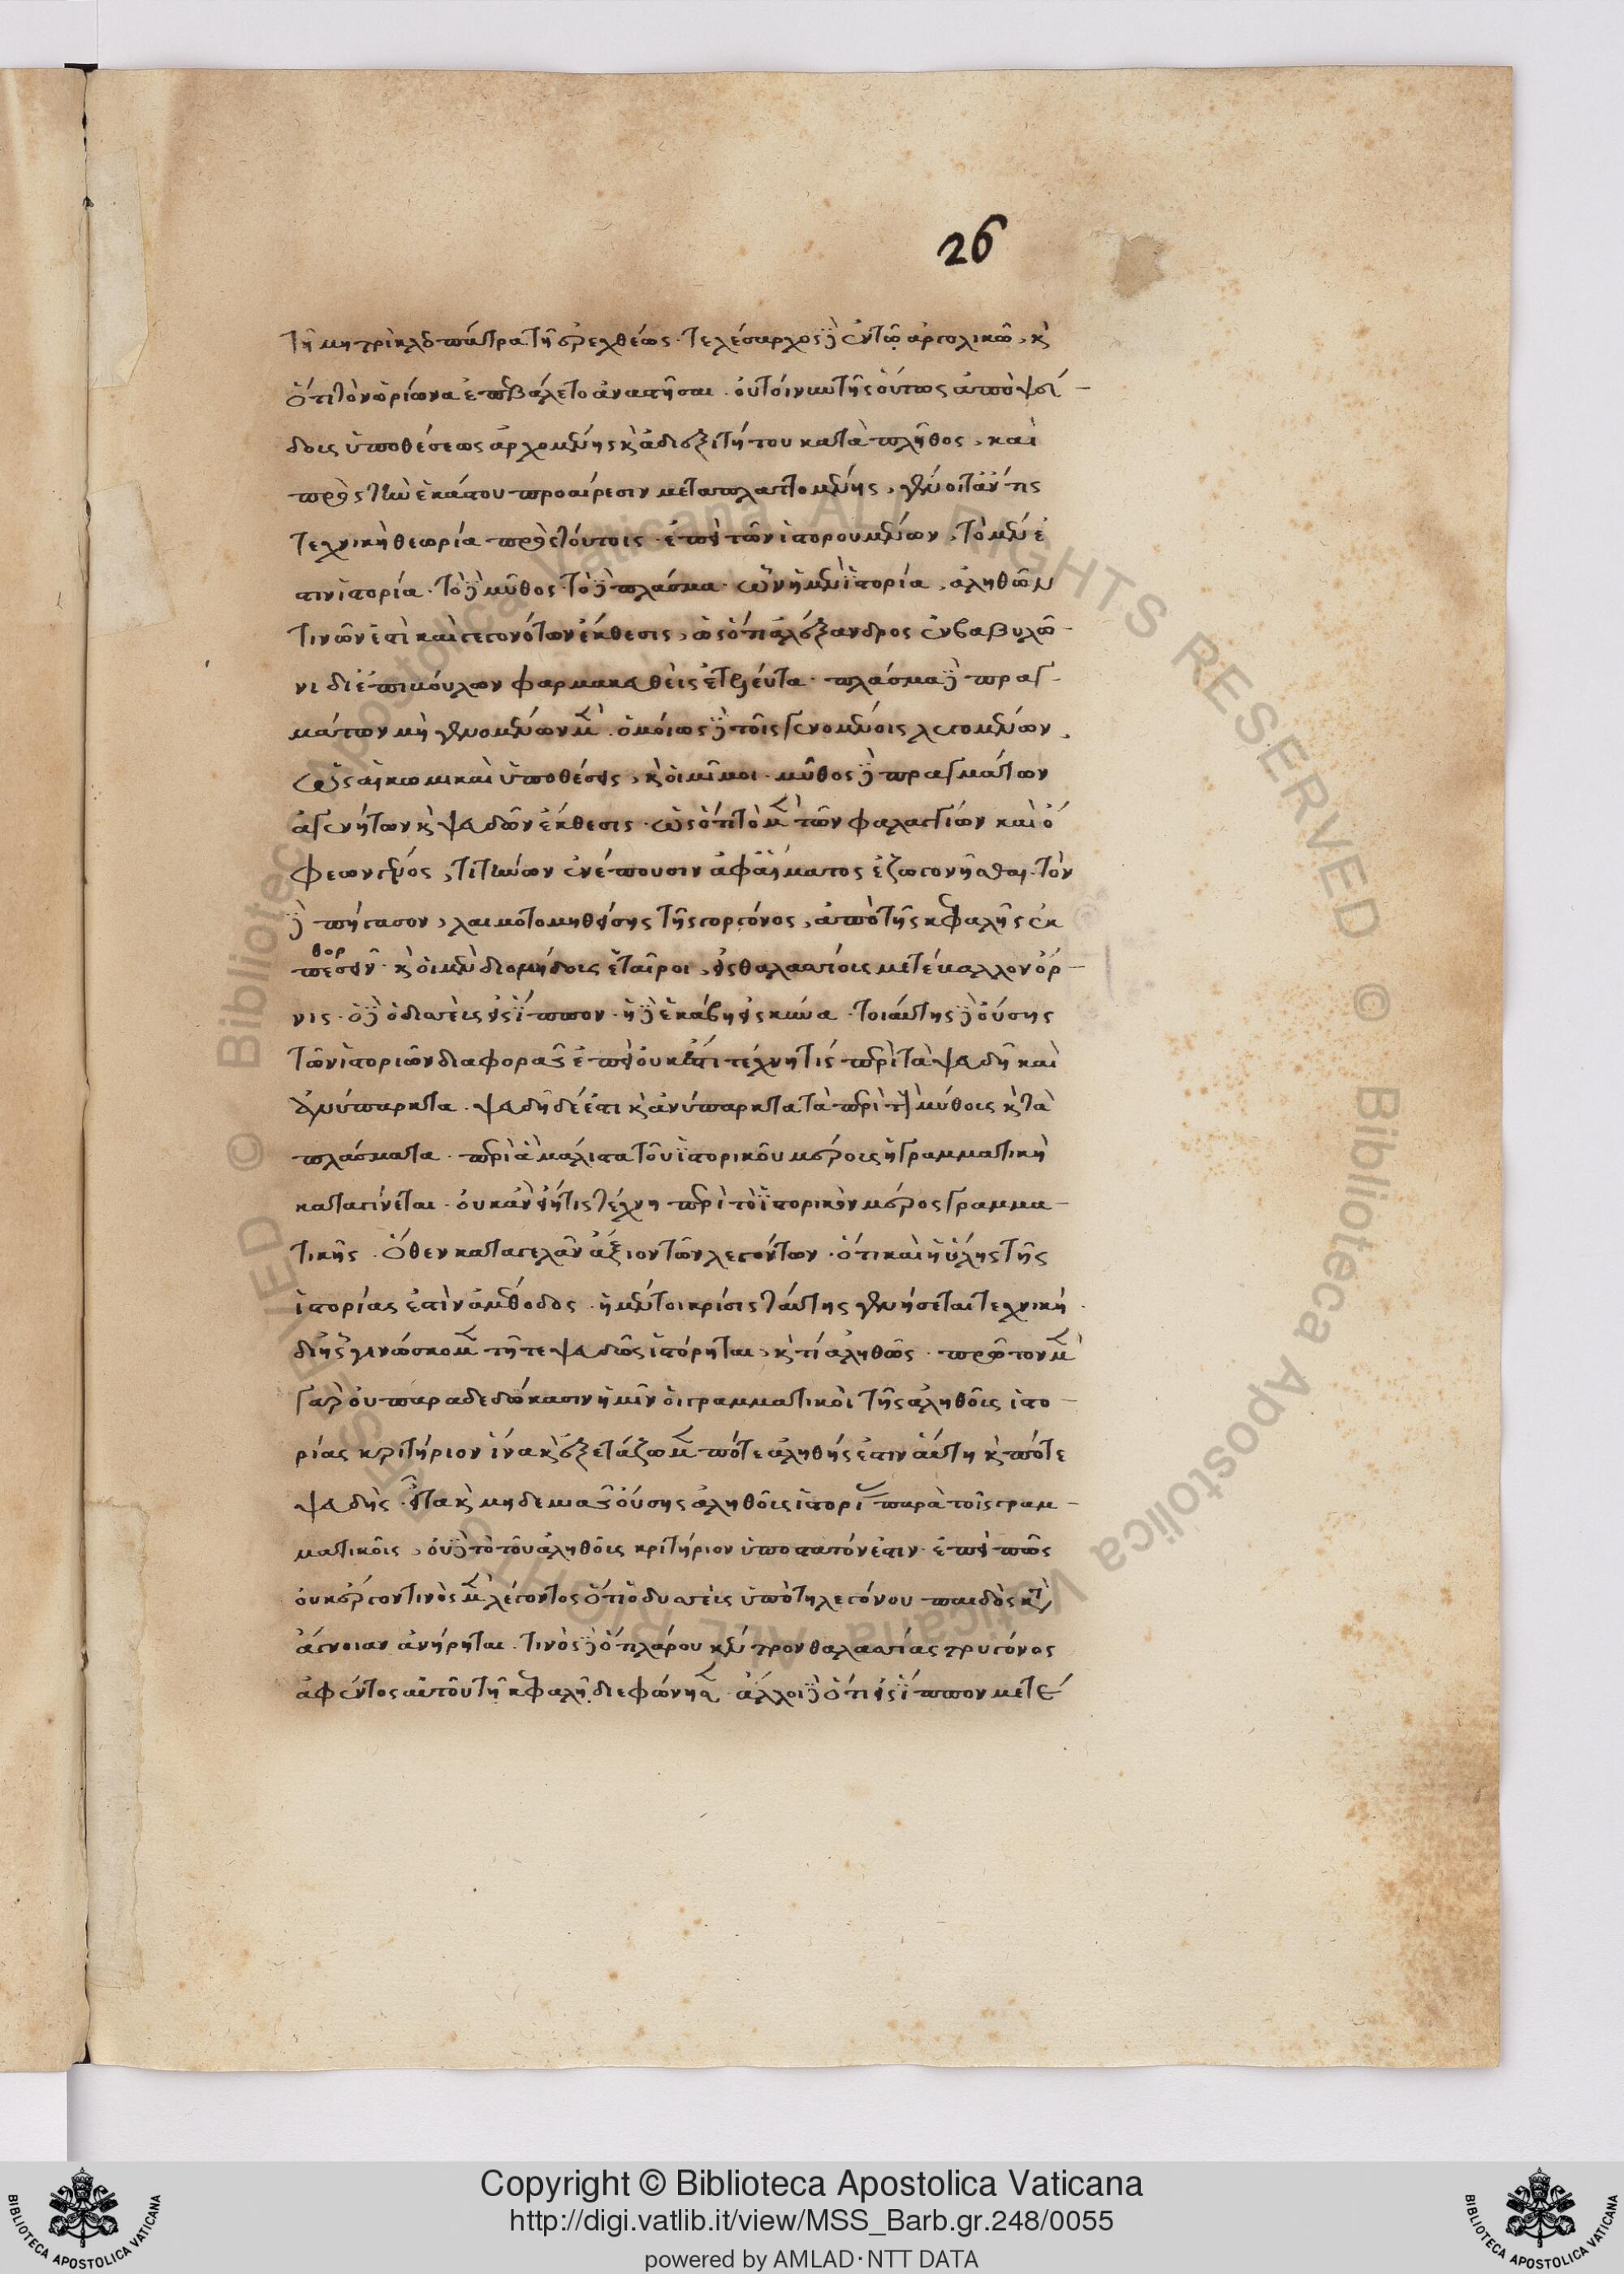 26
τῆ μητρὶ κλεοπάτρα τῆ ἐρεχθέως. τελέσαρχος δὲ ἐν τῶ ἀργολικῶ, κὶ
ὅτι τὸν ὠρίωνα ἐπεβάλετο ἀναστῆσαι. οὐ τοίνυν τῆς οὕτως ἀπὸ ψεύ-
δους ὑποθέσεως ἀρχομένης κὶ ἀδιεξιτήτου κατὰ πλῆθος, καὶ
πρὸς τὴν ἑκάστου προαίρεσιν μεταπλαττομένης, γένοιτ ἄν τις
τεχνικὴ θεωρία πρὸς τούτοις. ἐπεὶ τῶν ἱστορουμένων, τὸ μέν ἐ
στιν ἱστορία. τὸ δὲ μῦθος. τὸ δὲ πλάσμα. ὧν ἡ μὲν ἱστορία, ἀληθῶν
τινῶν ἐστὶ καὶ γεγονότων ἔκθεσις, ὡς ὅτι ἀλέξανδρος ἐν βαβυλῶ-
νι δι ἐπιβούλων φαρμακευθεὶς ἐτελεύτα. πλάσμα δὲ πραγ-
μάτων μὴ γενομένων μὲν. ὁμοίως δὲ τοῖς γενομένοις λεγομένων,
ὡς αἱ κωμικαὶ ὑποθέσεις, κὶ οἱ μῖμοι. μῦθος δὲ πραγμάτων
ἀγενήτων κὶ ψευδῶν ἔκθεσις. ὡς ὅτι τὸ μὲν τῶν φαλαγγίων καὶ ὀ
φέων γένος, τιτήνων ἐνέπουσιν ἀφ αἵματος ἐζωγονῆσθαι. τὸν
δὲ πήγασον, λαιμοτομηθείσης τῆς γοργόνος, ἀπὸ τῆς κεφαλῆς ἐκ
θορ
πεσεῖν. κὶ οἱ μὲν διομήδους ἑταῖροι, εἰς θαλασσίους μετέβαλλον ὄρ-
νις. ὁ δὲ ὀδυσσεὺς εἰς ἵππον. ἡ δὲ ἑκάβη εἰς κύνα. τοιαύτης δὲ οὔσης
τῶν ἱστοριῶν διαφορᾶς ἐπεὶ οὐκ ἔστι τέχνη τίς περὶ τὰ ψευδῆ καὶ
ἀνύπαρκτα. ψευδῆ δέ ἐστι κὶ ἀνύπαρκτα τὰ περὶ τοὺς μύθους κὶ τὰ
πλάσματα. περὶ ἃ μάλιστα τοῦ ἱστορικοῦ μέρους ἡ γραμματικὴ
καταγίνεται. οὐκ ἂν εἴη τις τέχνη περὶ τὸ ἱστορικὸν μέρος γραμμα-
τικῆς. ὅθεν καταγελᾶν ἄξιον τῶν λεγόντων. ὅτι καὶ ἡ ὕλης τῆς
ἱστορίας ἐστὶν ἀμέθοδος. ἡ μέντοι κρίσις ταύτης γενήσεται τεχνική.
δι ἧς γινώσκομεν τῆ τε ψευδῶς ἱστόρηται, κὶ τί ἀληθῶς. πρῶτον μὲν
γὰρ οὐ παραδεδώκασιν ἡμῖν οἱ γραμματικοὶ τῆς ἀληθοῦς ἱστο-
ρίας κριτήριον ἵνα κὶ ἐξετάζωμεν πότε ἀληθής ἐστιν αὕτη κὶ πότε
ψευδής. εἶτα κὶ μηδεμιᾶς οὔσης ἀληθοῦς ἱστορίας παρὰ τοῖς γραμ-
ματικοῖς, οὐδὲ τὸ τοῦ ἀληθοῦς κριτήριον ὑποστατόν ἐστιν. ἐπεὶ πῶς
οὐκ ἔργον τινὸς μὲν λέγοντος ὅτι ὀδυσσεὺς ὑπὸ τηλεγόνου παιδὸς κατὰ
ἄγνοιαν ἀνῄρηται. τινὸς δὲ ὅτι λάρου κέντρον θαλασσίας τρυγόνος
ἀφέντος αὐτοῦ τῆ κεφαλῆ διεφώνησεν. ἄλλοι δὲ ὅτι εἰς ἵππον μετε
Copyright © Biblioteca Apostolica Vaticana
http://digi.vatlib.it/view/MSS_Barb.gr.248/0055
powered by AMLAD·NTT DATA